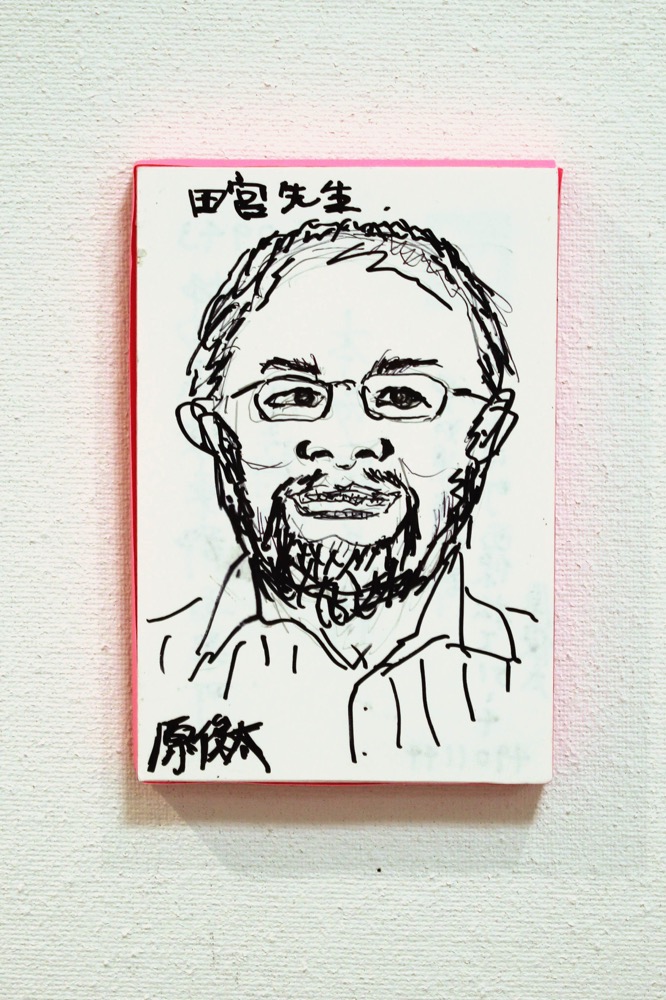 田宮先生.
原俊太